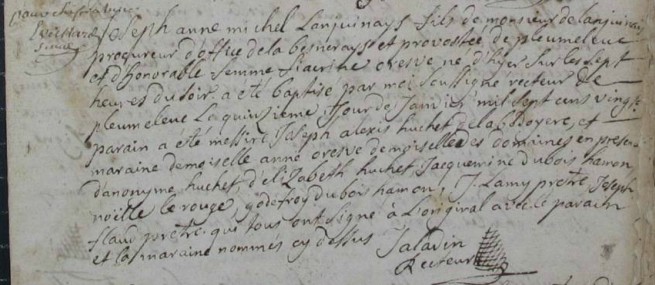 Joseph anne michel Lanquinays fils de monsieur de lanquinais
procureur d'office de la besnerays et provostée de pleumeleuc
et d'honorable femme fiacrine oresve né d'hyer sur les sept
heures du soir. a été baptisé par moi soussigné recteur de
pleumeleuc la quinzieme Jour de Janvier mil sept cens vingt
parain a été messire Joseph alexis huchet de la bedoyere, et
maraine demoiselle anne oresve demoiselle es domaines en presen
d'anonyme huchet, d'elizabeth huchet Jacquemine dubois hamon
noille le rouge, godefroy du bois hamon, J. Lamy prestre, Joseph
flaud prestre. qui tous ont signé à L'original avec le parain
et la maraine nommes cy dessus Saladin
Recteur